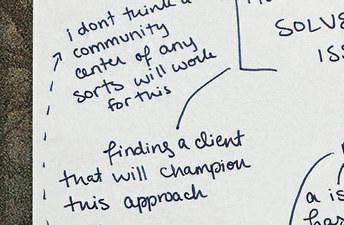 i dont think a
community
center of any
sorts will work
for this
SOLVE
ISS
finding a client
that will champion
this approach
a is
has